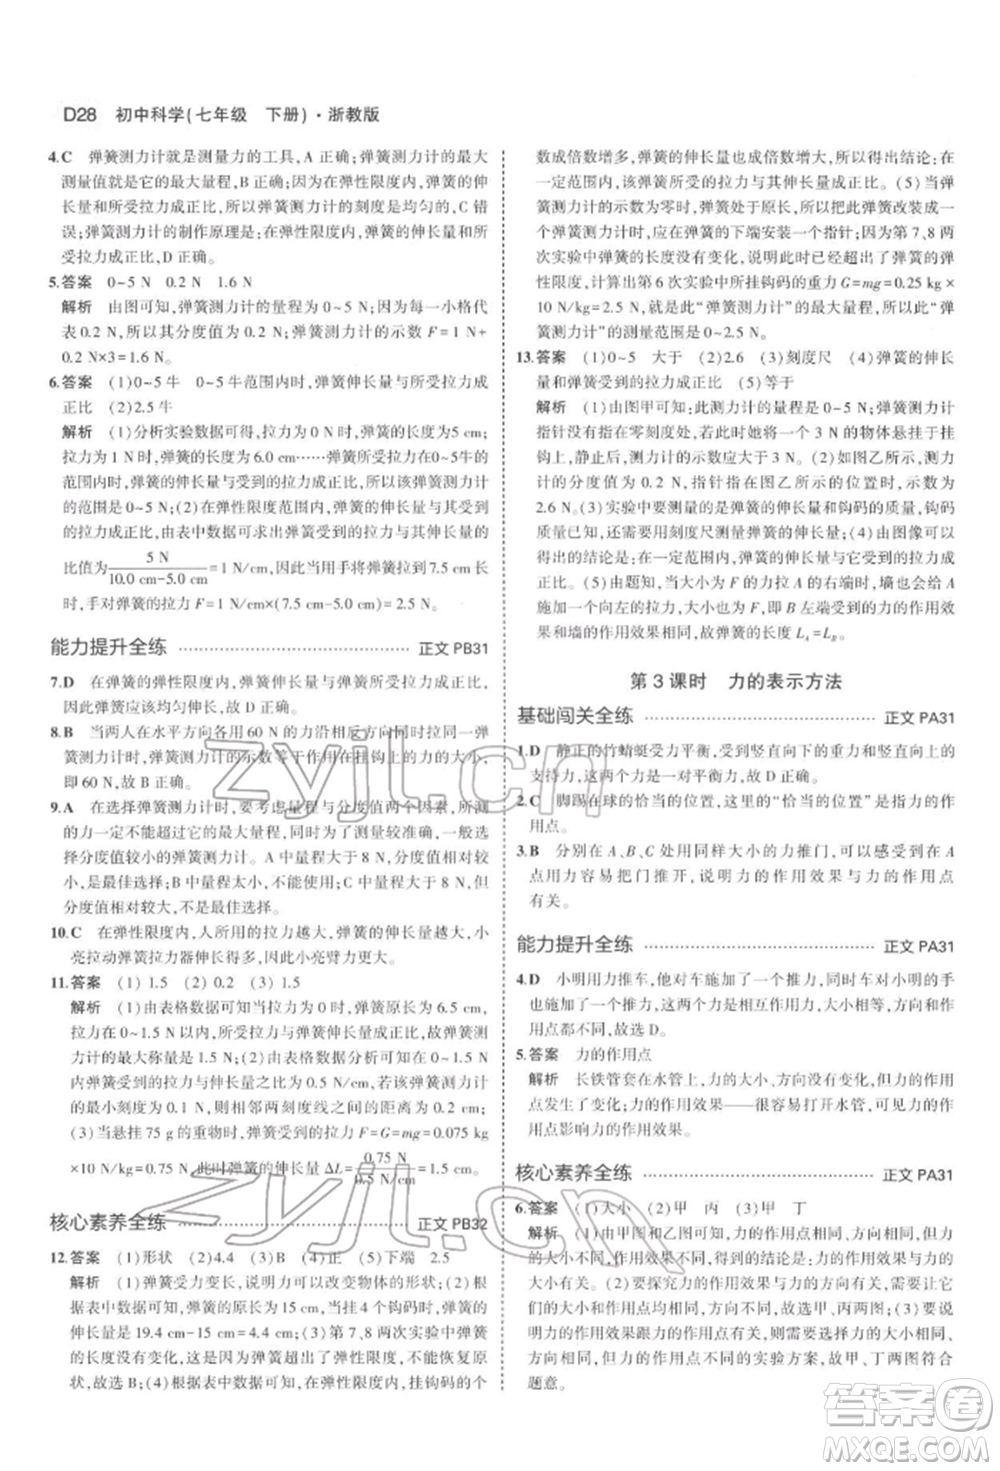 D28 初中科学(七年级 下册)·浙教版
4.C 弹簧测力计就是测量力的工具,A 正确;弹簧测力计的最大
测量值就是它的最大量程,B 正确;因为在弹性限度内,弹簧的伸
长量和所受拉力成正比,所以弹簧测力计的刻度是均匀的,C 错
误;弹簧测力计的制作原理是:在弹性限度内,弹簧的伸长量与所
受拉力成正比,D 正确。
5.答案 0~5 N 0.2 N 1.6 N
解析 由图可知,弹簧测力计的量程为 0~5 N,每一小格代
表 0.2 N,所以其分度值为 0.2 N;弹簧测力计的示数 F=1 N+
0.2 N×3=1.6 N。
6.答案 (1)0~5 牛 0~5 牛范围内时,弹簧伸长量与所受拉力成
正比 (2)2.5 牛
解析 (1)分析实验数据可得,拉力为 0 N 时,弹簧长度为
5.0 cm;拉力为 1 N 时,弹簧长度为 6.0 cm……弹簧拉力在 0~5牛的
范围内每增加 1 N,弹簧伸长 1.0 cm,所以该弹簧测力计的量程
是 0~5 N;(2)在弹性限度范围内,弹簧的伸长量与其受到
的拉力成正比,由表中数据可求出弹簧所受拉力与伸长量的
比值为 5 N / 10.0 cm-5.0 cm =1 N/cm,因此当用手将弹簧拉到 7.5 cm
时,手对弹簧的拉力 F=1 N/cm×(7.5 cm-5.0 cm)=2.5 N。
能力提升全练 正文 PB31
7.D 在弹簧的弹性限度内,弹簧的伸长量与弹簧所受拉力成正
比,弹簧应该均匀伸长,故 D 正确。
8.B 当两人在水平方向各用 60 N 的力沿相反方向拉一弹
簧测力计两端时,弹簧测力计的示数等于作用在挂钩上的力,
即 60 N,故 B 正确。
9.A 在选择弹簧测力计时,要考虑量程与分度值两个因素,所测
的力一定不能超过它的最大量程,同时为了测量准确,一般选择
分度值较小的弹簧测力计。A 中量程大于 8 N,分度值也较
小,是最佳选择;B 中量程太小,不能选择;C 中量程大于 8 N,但分
度值相对较大,不是最佳选择。
10.C 在弹性限度内,人所用的拉力越大,弹簧的伸长量越大,小
亮拉动弹簧拉力器伸长量大,因此小亮臂力大。
11.答案 (1)1.5 (2)0.2 (3)1.5
解析 (1)由表格数据可知当拉力为 0 时,弹簧原长为 6.5 cm,
拉力在 0~1.5 N 以内,所受拉力与弹簧伸长量成正比,故弹簧测
力计的最大称量是 1.5 N;(2)由表格数据分析可知在 1.5 N
内弹簧每受到 0.5 N 的拉力就会伸长 1 cm,若该弹簧测力计的
最小刻度为 0.1 N,则相邻两刻度线之间的距离应为 0.2 cm;
(3)当悬挂 75 g 的重物时,弹簧受到的拉力 F=G=mg=0.075 kg
×10 N/kg=0.75 N,此时弹簧的伸长量 ΔL= 0.75 N / 0.5 N/cm =1.5 cm。
核心素养全练 正文 PB32
12.答案 (1)形状 (2)4.4 (3)B (4)正 (5)下端 2.5
解析 (1)弹簧受力变长,说明力可以改变物体的形状;(2)根
据表中数据,弹簧的原长为 15 cm,当挂 4 个钩码时,弹簧的
伸长量为 19.4 cm-15 cm=4.4 cm;(3)第 7、8 两次实验中弹簧
的长度没有变化,这是因为弹簧超出了弹性限度,不能恢复原
状,故选 B;(4)根据表中数据可知,在弹性限度内,挂钩码的个
数成倍数增多,弹簧的伸长量也成倍数增大,所以得出结论:在
一定范围内,该弹簧所受的拉力与其伸长量成正比。(5)当弹
簧测力计的示数为零时,弹簧处于原长,所以把弹簧改装成一
个弹簧测力计时,应在弹簧的下端安装一个指针;因为第 7、8 两
次实验中弹簧的长度没有变化,说明此时已经超出了弹簧的弹
性限度,计算出第 6 次实验中所挂钩码的重力 G=mg=0.25 kg×
10 N/kg=2.5 N,所以这个“弹簧测力计”的测量范围是 0~2.5 N。
13.答案 (1)0~5 大于 (2)2.6 (3)刻度尺 (4)弹簧的伸长
量和弹簧受到的拉力成正比 (5)等于
解析 (1)由图甲可知:此测力计的量程是 0~5 N;弹簧测力计
指针没有指在零刻度处,若此时她将一个 3 N 的物体悬挂在挂
钩上,静止后,测力计的示数应大于 3 N;(2)如图乙所示,测力
计的分度值为 0.2 N,指针指在如图乙所示的位置时,示数为
2.6 N。(3)实验中需要测量的量是弹簧的伸长量和钩码的质量,钩码
质量已知,还需要用刻度尺测量弹簧的伸长量;(4)由图像可
得出的结论是:在一定范围内,弹簧的伸长量与它所受拉力成正
比;(5)由题知,当大小为 F 的力拉 A 的右端时,墙也会给 A
施加一个向左的拉力,大小为 F,墙的作用效果与 B 左端受到的力的作用效
果和墙的作用效果相同,故弹簧的长度 LA=LB。
第 3 课时 力的表示方法
基础闯关全练 正文 PA31
1.D 静止的竹蜻蜓受力平衡,受到竖直向下的重力和竖直向上的
支持力,这两个力是一对平衡力,故 D 正确。
2.C 脚踢在球的恰当的位置,这里的“恰当的位置”是指力的作
用点。
3.B 分别在 A、B、C 处用同样大小的力推门,可以感受到在 A
点用力容易把门推开,说明力的作用效果与力的作用点
有关。
能力提升全练 正文 PA31
4.D 小明用力推车,他对车施加了一个推力,同时车对小明的手
也施加了一个推力,这两个力是相互作用力,大小相等,方向和作
用点都不同,故选 D。
5.答案 力的作用点
解析 长铁管套在水管上,力的大小、方向没有变化,但力的作用
点发生了变化;力的作用效果——很容易打开水管,可见力的作
用点影响力的作用效果。
核心素养全练 正文 PA31
6.答案 (1)大小 (2)甲 丙 (3)甲 丁
解析 (1)由甲图和乙图可知,力的作用点相同、方向相同,但力
的大小不同,因此得出的结论是:力的作用效果与力的大小
有关。(2)要探究力的作用效果与力的方向有关,应控制力的
大小和作用点均相同,方向不同,故选甲、丙两图。(3)要探究
力的作用效果与力的作用点有关,应控制力的大小、方向相同,作用点不同的实验方案,故甲、丁两图符合
题意。
zyjl.cn
zyjl.cn
答案圈
MXQE.COM